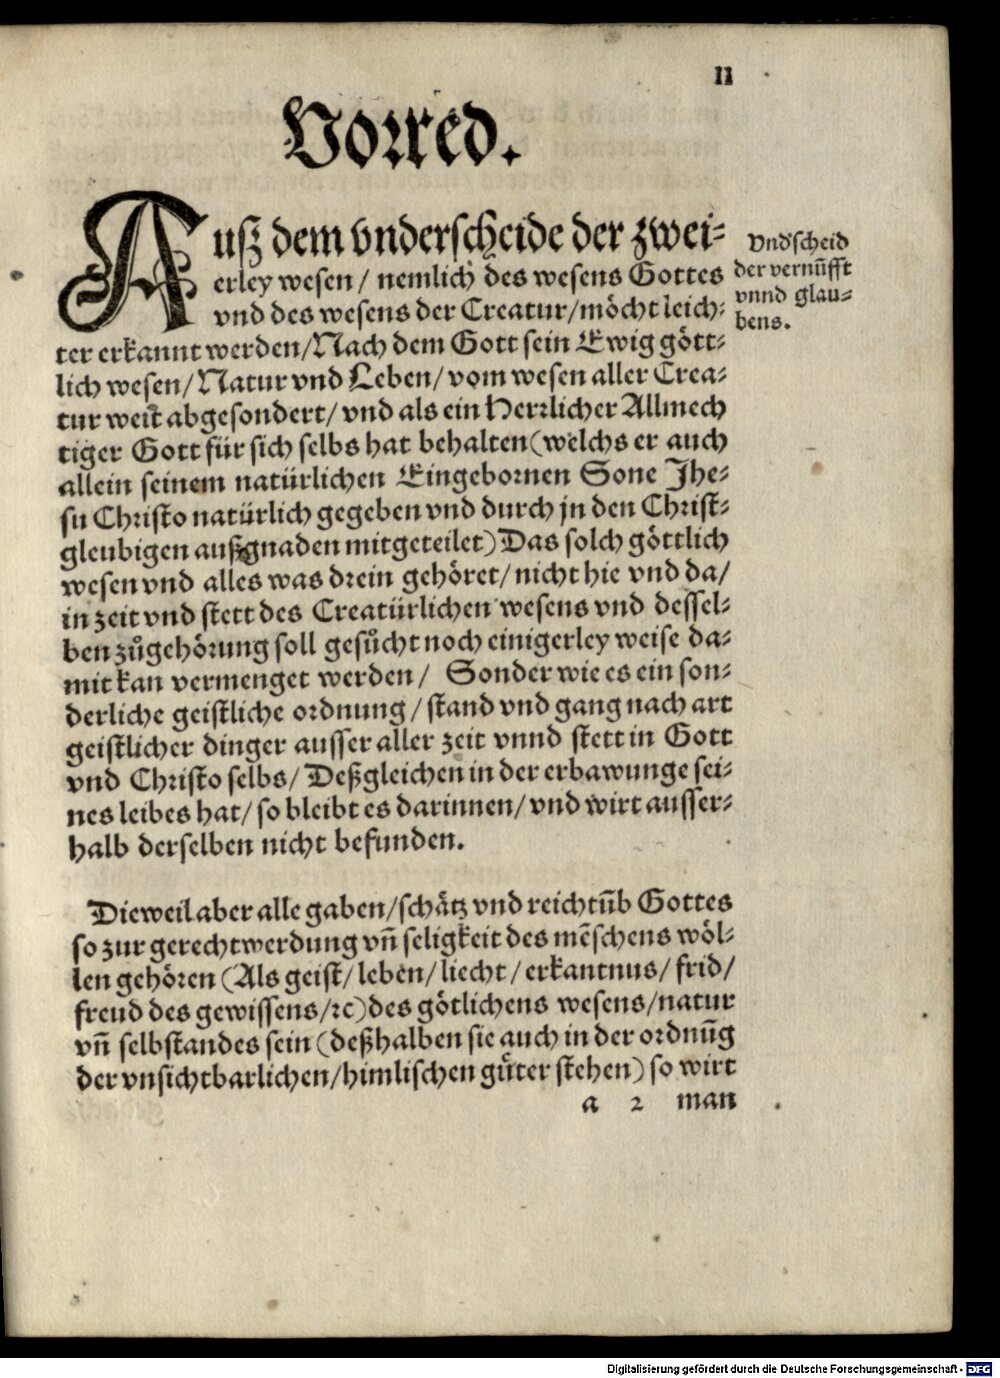 II
Vorred.
Auſz dem vnderſcheide der zwei-
erley weſen / nemlich des weſens Gottes
vnd des weſens der Creatur / möcht leich-
ter erkannt werden / Nach dem Gott ſein Ewig gött-
lich weſen / Natur vnd Leben / vom weſen aller Crea-
tur weit abgeſondert / vnd als ein Herrlicher Allmech
tiger Gott für ſich ſelbs hat behalten (welchs er auch
allein ſeinem natürlichen Eingebornen Sone Jhe-
ſu Chriſto natürlich gegeben vnd durch jn den Chriſt-
gleubigen auß gnaden mitgeteilet) Das ſolch göttlich
weſen vnd alles was drein gehöret / nicht hie vnd da /
in zeit vnd ſtett des Creatürlichen weſens vnd deſſel-
ben zůgehörung ſoll geſůcht noch einigerley weiſe da-
mit kan vermenget werden / Sonder wie es ein ſon-
derliche geiſtliche ordnung / ſtand vnd gang nach art
geiſtlicher dinger auſſer aller zeit vnnd ſtett in Gott
vnd Chriſto ſelbs / Deßgleichen in der erbawunge ſei-
nes leibes hat / ſo bleibt es darinnen / vnd wirt auſſer-
halb derſelben nicht befunden.
Dieweil aber alle gaben / ſchätz vnd reichtūb Gottes
ſo zur gerechtwerdung vn̄ ſeligkeit des mēſchens wöl-
len gehören (Als geiſt / leben / liecht / erkantnus / frid /
freud des gewiſſens / ꝛc) des götlichens weſens / natur
vn̄ ſelbſtandes ſein (deßhalben ſie auch in der ordnūg
der vnſichtbarlichen / himliſchen gůter ſtehen) ſo wirt
a 2 man
Vnd'ſcheid
der vernūfft
vnnd glau-
bens.
Digitalisierung gefördert durch die Deutsche Forschungsgemeinschaft - DFG